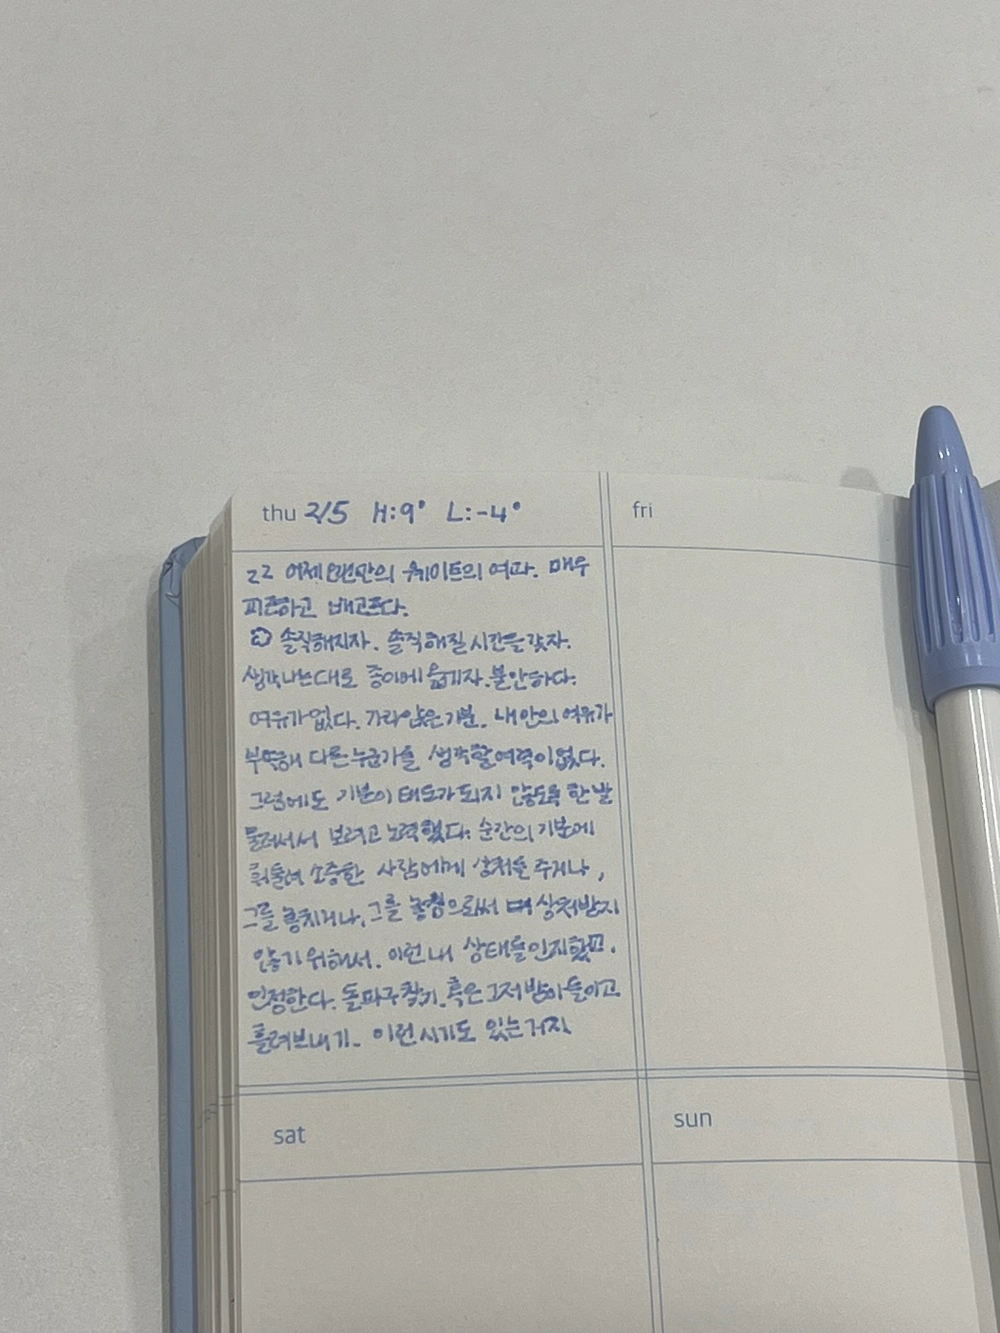 thu 2/5 H:9° L:-4°
zz 어제 오랜만의 웨이트의 여파. 매우
피곤하고 배고프다.
솔직해지자. 솔직해질 시간을 갖자.
생각나는대로 종이에 옮기자. 불안하다.
여유가 없다. 가라앉은 기분. 내 안의 여유가
부족해 다른 누군가를 생각할 여력이 없다.
그럼에도 기분이 태도가 되지 않도록 한 발
물러서서 보려고 노력했다. 순간의 기분에
휘둘려 소중한 사람에게 상처를 주거나,
그를 놓치거나, 그를 놓침으로써 상처받지
않기 위해서. 이런 내 상태를 인지했고,
인정한다. 돌파구 찾기. 혹은 그저 받아들이고
흘려보내기. 이런 시기도 있는 거지
fri
sat
sun